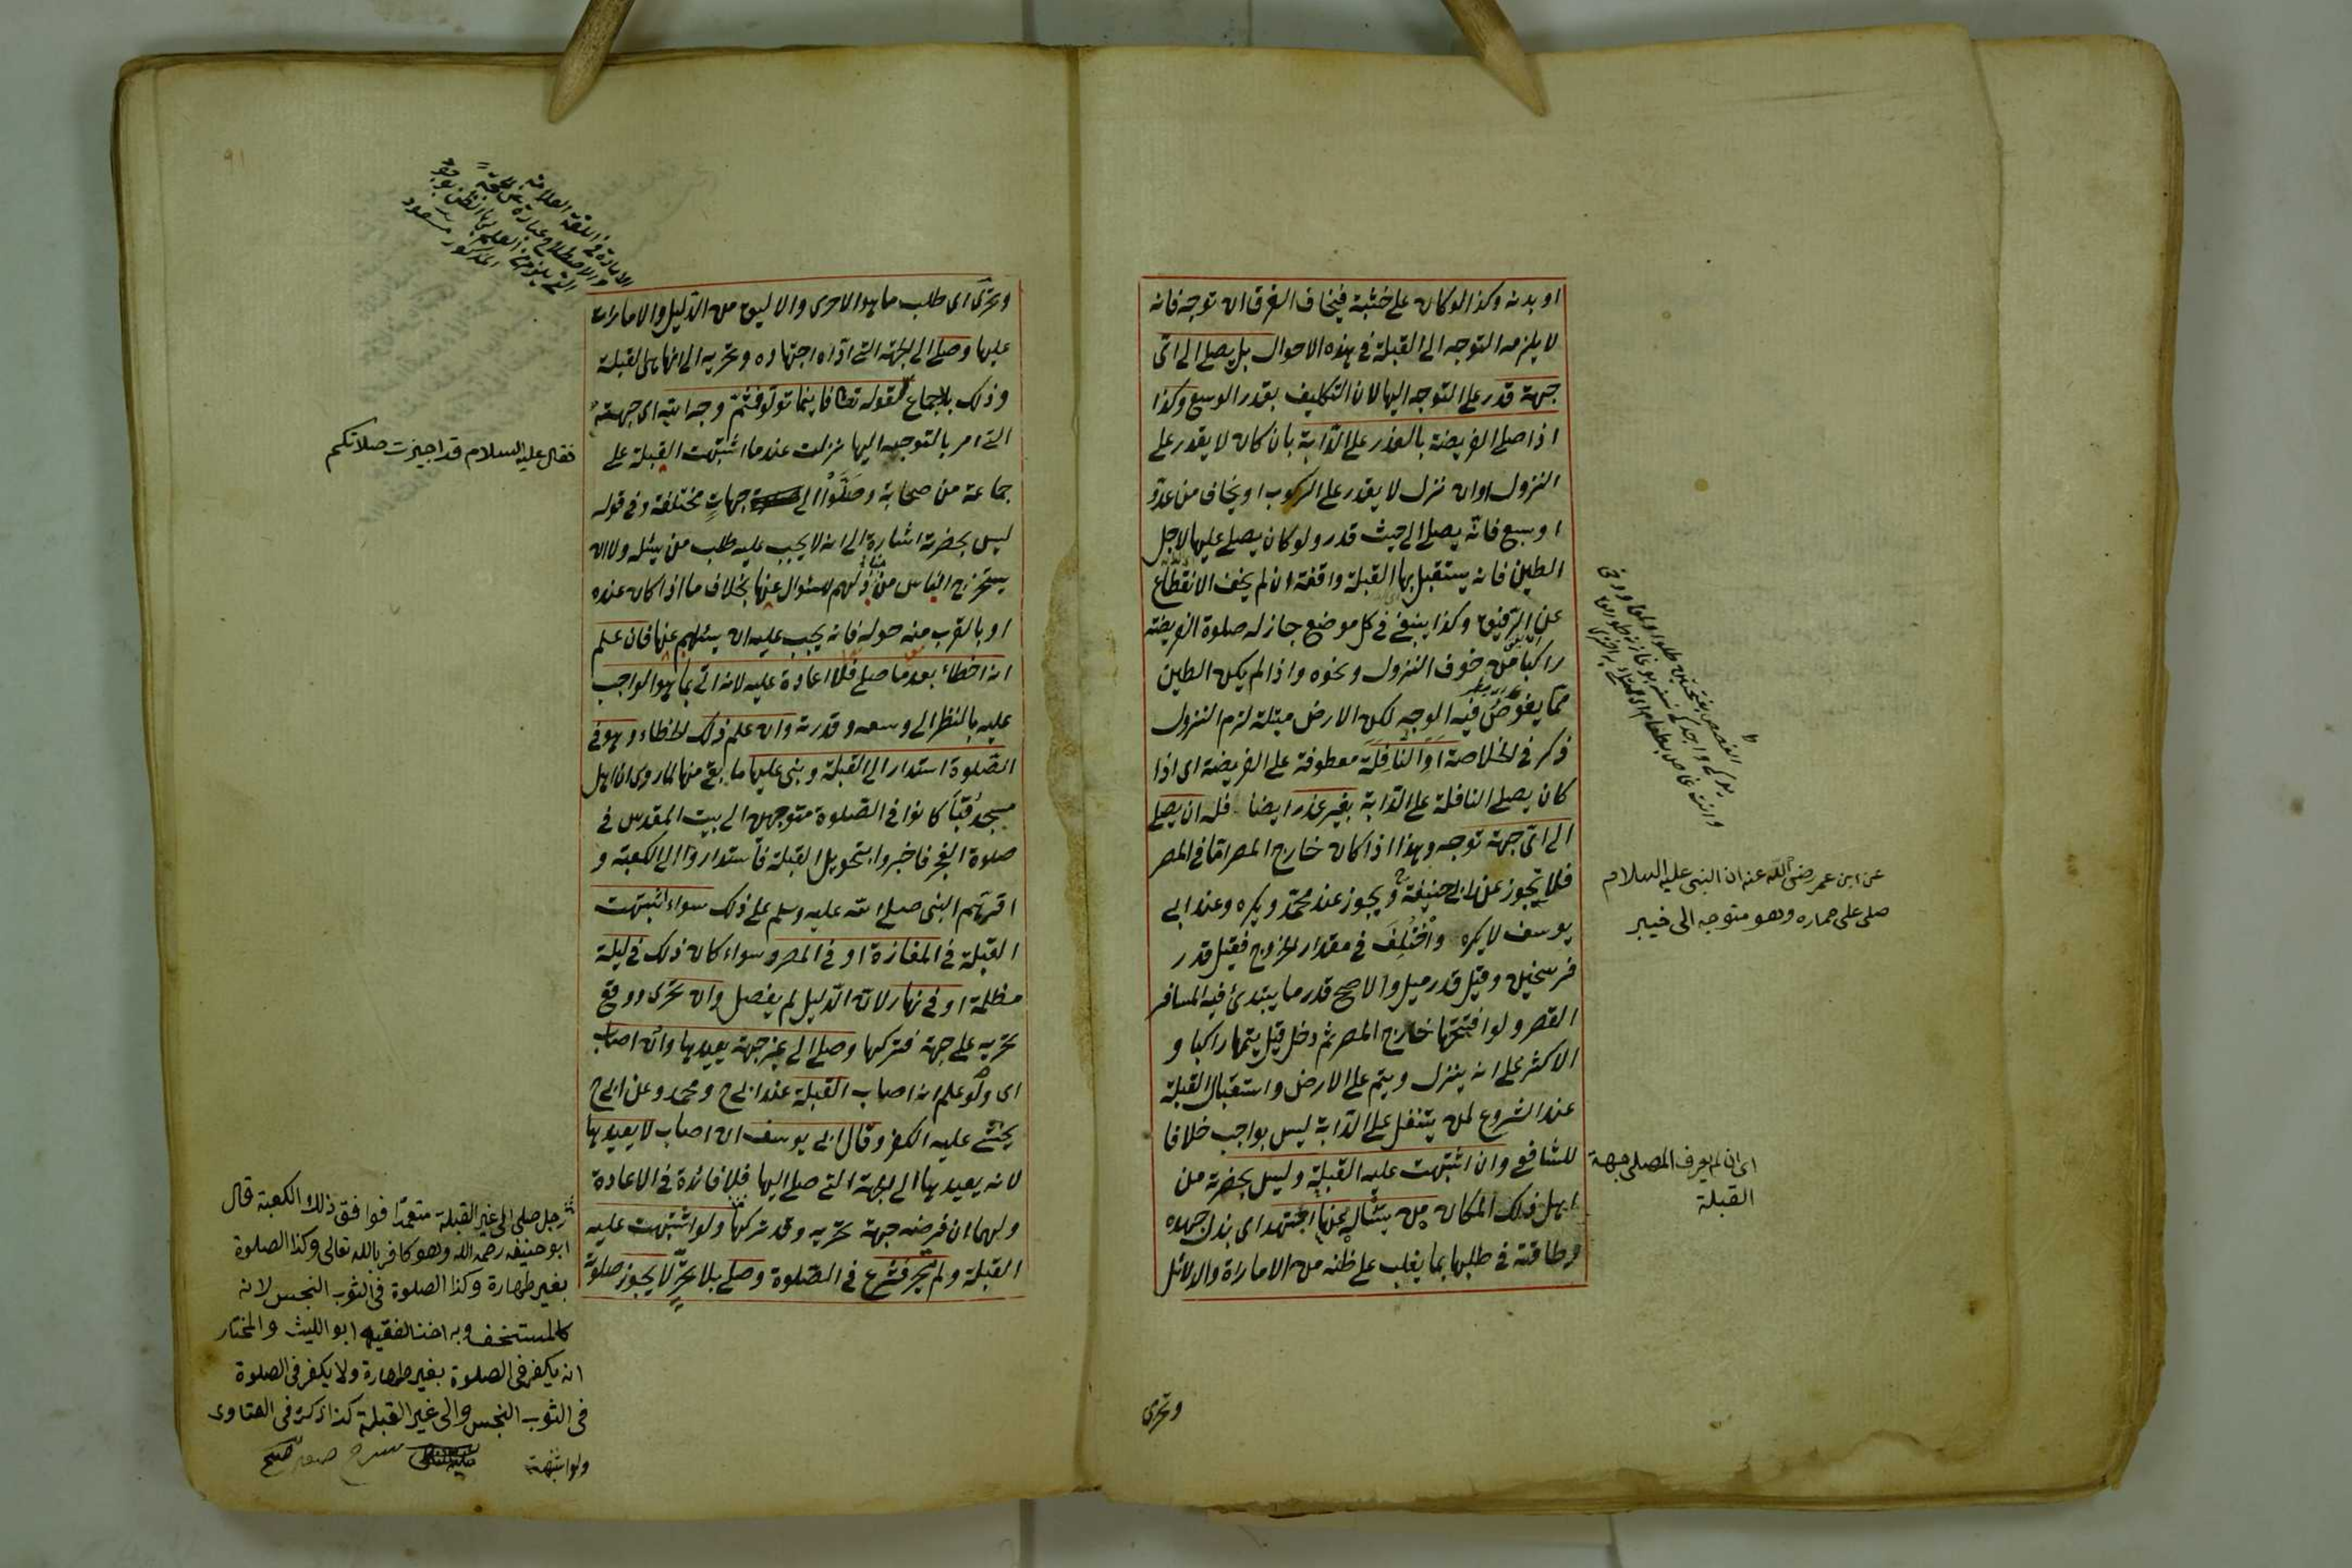 او بدنه وكذا لو كان على خشبة فيخاف الغرق ان توجه فانه
لا يلزمه التوجه الى القبلة فى هذه الاحوال بل يصلى الى اى
جهة قدر على التوجه اليها لان التكليف بقدر الوسع وكذا
اذا صلى الفريضة بالعذر على الدّابة بان كان لا يقدر على
النزول او ان نزل لا يقدر على الركوب او يخاف من عدوّ
او سبع فانّه يصلى الى حيث قدر ولو كان يصلى عليها لاجل
الطين فانه يستقبل بها القبلة واقفة ان لم يخف الانقطاع
عن الرفيق وكذا ينبغى فى كل موضع جاز له صلوة الفريضة
راكبا من خوف النزول ونحوه واذا لم يكن الطين
ممّا يغوصُ فيه الوجه لكن الارض مبتلة لزم النزول
ذكر فى الخلاصة اَوِ النَّافِلَةَ معطوفة على الفريضة اى اذا
كان يصلى النافلة على الدّابة بغير عذر ايضا فله ان يصلى
الى اىّ جهة توجه وهذا اذا كان خارج المصر امّا فى المصر
فلا يجوز عند ابى حنيفة ويجوز عند محمّد ويكره وعند ابى
يوسف لا يكره واُختُلِفَ فى مقدار الخروج فقيل قدر
فرسخين وقيل قدر ميل والاصح قدر ما يبتدئ فيه المسافر
القصر ولو افتتحها خارج المصر ثم دخل قيل يتمها راكبا و
الاكثر على انه ينزل ويتم على الارض واستقبال القبلة
عند الشروع لمن يتنفل على الدّابة ليس بواجب خلافا
للشافعى وان اشتبهت عليه القبلة وليس بحضرته من
اهل ذلك المكان من يسأله عنها اجتهد اى بذل جهده
وطاقته فى طلبها بما يغلب على ظنه من الاماراة والدلائل
وتحرى
عن ابن عمر رضى الله عنه ان النبى عليه السلام
صلى على حماره وهو متوجه الى خيبر
اى ان لم يعرف المصلى جهة
القبلة
وتحرّى اى طلب ما هو الاحرى والاليق من الدّليل والامارات
عليها وصلى الى الجهة التى ادّاه اجتهاده وتحريه الى انها هى القبلة
وذلك بالاجماع لقوله تعالى فاينما تولوا فثمّ وجه الله اى جهته
التى امر بالتوجه اليها نزلت عندما اشتبهت القبلة على
جماعة من صحابة وصَلَّوْا الى جهاتٍ مختلفة وفى قوله
ليس بحضرته اشارة الى انه لا يجب عليه طلب من يسئله ولا ان
يستخرج الناس من منازلهم للسئوال عنها بخلاف ما اذا كان عنده
او بالقرب منه حوله فانه يجب عليه ان يسئلهم عنها فان علم
انه اخطاء بعد ما صلى فلا اعادة عليه لانه اتى بما هو الواجب
عليه بالنظر الى وسعه وقدرته وان علم ذلك الخطاء وهو فى
الصّلوة استدار الى القبلة وبنى عليها ما بقى منها لما روى ان اهل
مسجد قبا كانوا فى الصّلوة متوجهين الى بيت المقدس فى
صلوة الفجر فاخبروا بتحويل القبلة فاستداروا الى الكعبة و
اقرّهم النبى صلى الله عليه وسلم على ذلك سواء اشتبهت
القبلة فى المفازة او فى المصر وسواء كان ذلك فى ليلة
مظلمة او فى نهار لانّ الدّليل لم يفصل وان تحرّى ووقع
تحريه على جهة فتركها وصلى الى غير جهة يعيدها وان اصاب
اى ولو علم انه اصاب القبلة عند ابى ح ومحمد وعن ابى ح
يخشى عليه الكفر وقال ابى يوسف ان اصاب لا يعيدها
لانه يعيدها الى الجهة التى صلى اليها فلا فائدة فى الاعادة
ولهما ان فرضه جهة تحريه وقد تركها ولو اشتبهت عليه
القبلة ولم يتحر فشرع فى الصّلوة وصلى بلا تحرٍّ لا يجوز صلوته
فقال عليه السلام قد اجيزت صلاتكم
رجل صلى الى غير القبلة متعمدًا فوافق ذلك الكعبة قال
ابو حنيفه رحمه الله وهو كافر بالله تعالى وكذا الصلوة
بغير طهارة وكذا الصلوة فى الثوب النجس لانه
كالمستخف وبه اخذ الفقيه ابو الليث والمختار
انه يكفر فى الصلوة بغير طهارة ولا يكفر فى الصلوة
فى الثوب النجس والى غير القبلة كذا ذكره فى الفتاوى
ولو اشتبهت